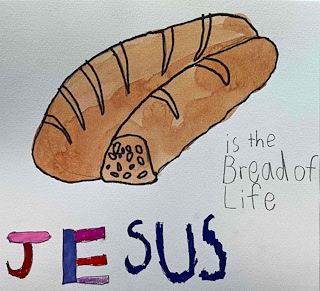 is the
Bread of
Life
JESUS